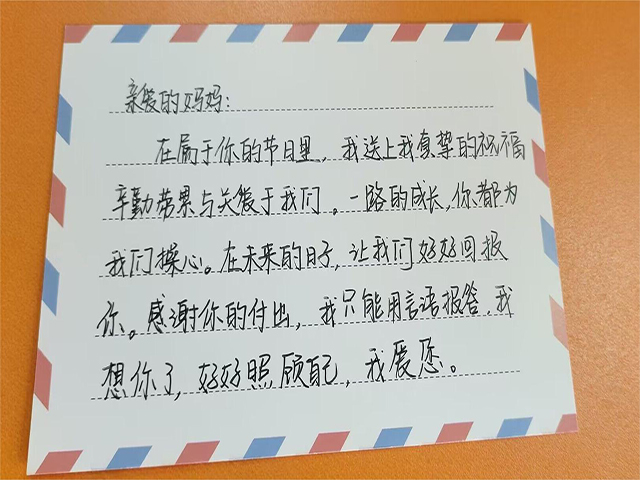 亲爱的妈妈:
在属于你的节日里,我送上我真挚的祝福
辛勤劳累与关爱于我们。一路的成长,你都为
我们操心。在未来的日子,让我们好好回报
你。感谢你的付出,我只能用言语报答,我
想你了,好好照顾自己,我爱您。